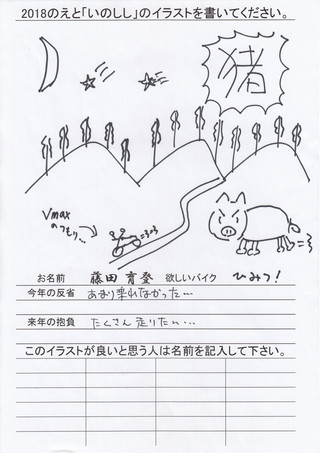 2018のえと「いのしし」のイラストを書いてください。
猪
Vmax
のつもり…
お名前 藤田 育登 欲しいバイク ひみつ!
今年の反省 あまり乗れなかった…
来年の抱負 たくさん走りたい…
このイラストが良いと思う人は名前を記入して下さい。